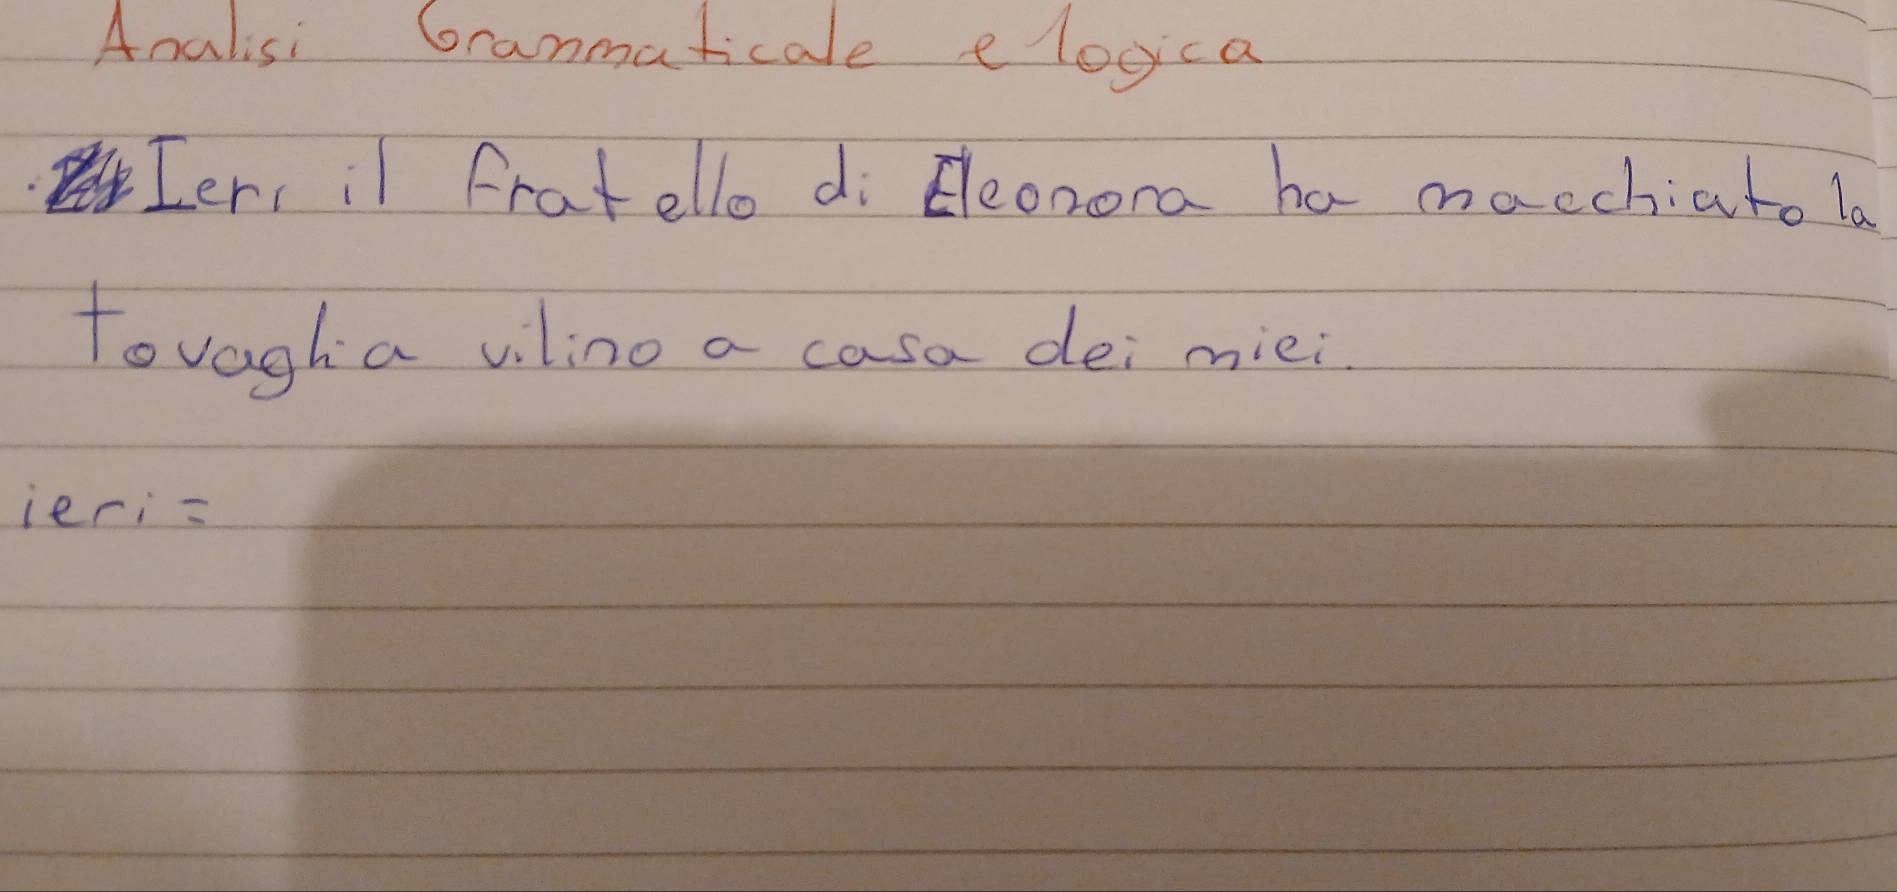 Analisi Grammaticale e logica
Ieri il fratello di Eleonora ha macchiato la
tovaglia vilino a casa dei miei.
ieri =